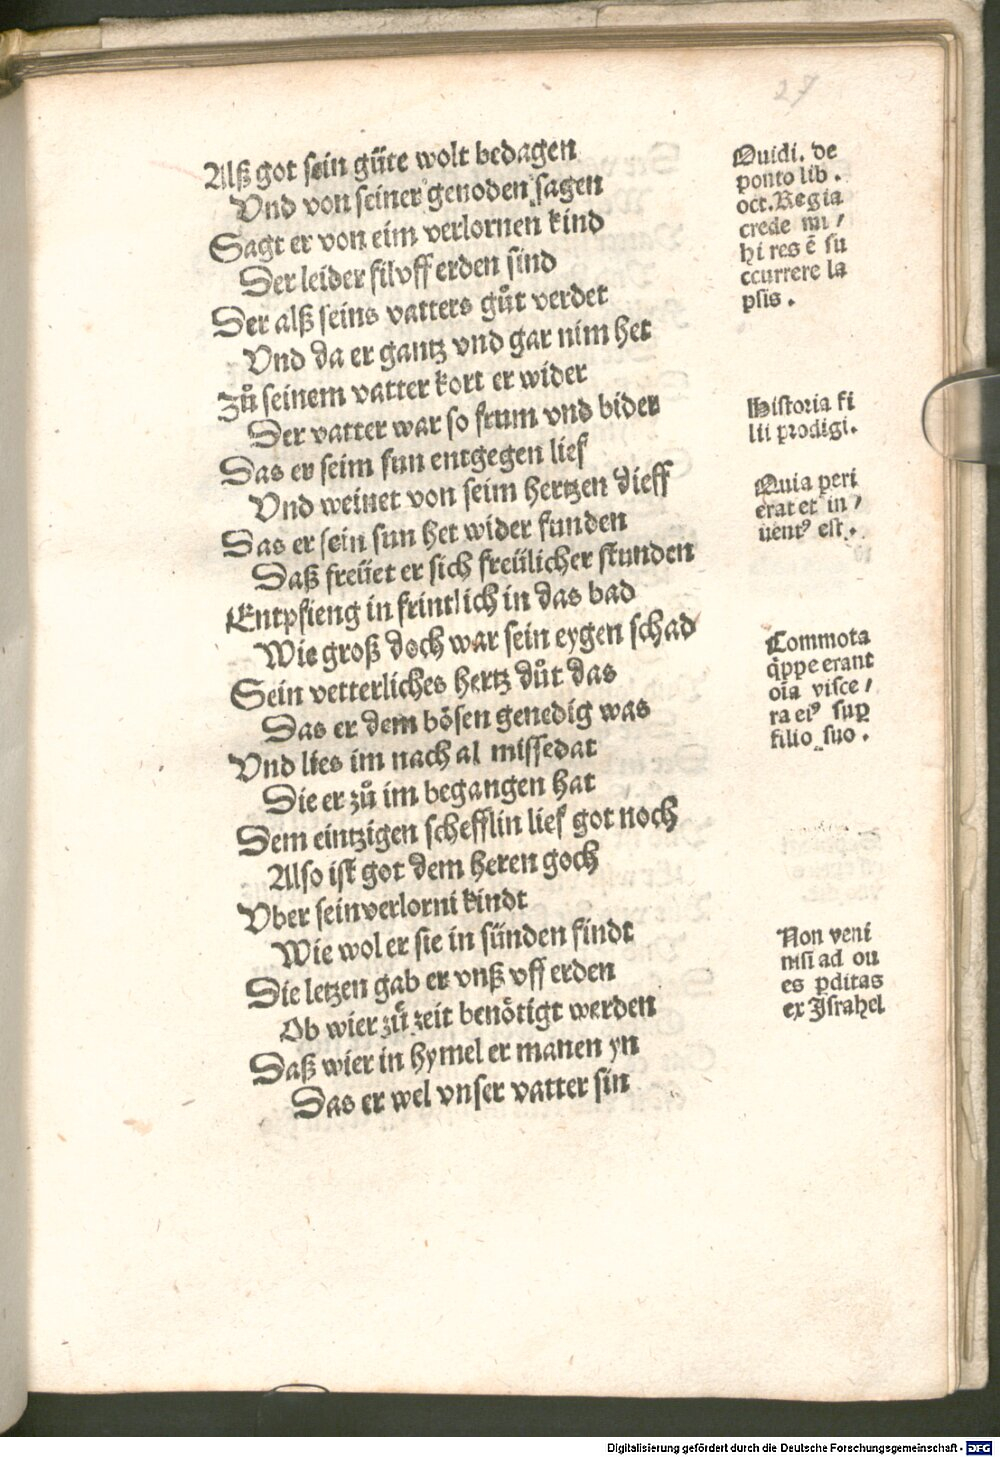 27
Alß got sein güte wolt bedagen
Vnd von seiner genoden sagen
Sagt er von eim verlornen kind
Der leider fil vff erden sind
Der alß seins vatters gůt verdet
Vnd da er gantz vnd gar nim het
Zů seinem vatter kort er wider
Der vatter war so frum vnd bider
Das er seim sun entgegen lief
Vnd weinet von seim hertzen dieff
Das er sein sun het wider funden
Daß freüet er sich freülicher stunden
Entpfieng in frintlich in das bad
Wie groß doch war sein eygen schad
Sein vetterliches hertz důt das
Das er dem bösen genedig was
Vnd lies im nach al missedat
Die er zů im begangen hat
Dem eintzigen schefflin lief got noch
Also ist got dem heren goch
Vber sein verlorni kindt
Wie wol er sie in sünden findt
Die letzen gab er vnß vff erden
Ob wier zů zeit benötigt werden
Daß wier in hymel er manen yn
Das er wel vnser vatter sin
Ouidi. de
ponto lib.
oct. Regia
crede mi /
hi res ē su
ccurrere la
psis.
Historia fi
lii prodigi.
Quia peri
erat et in /
uentꝰ est.
Commota
q̄ppe erant
oīa visce /
ra eiꝰ suꝑ
filio suo.
Non veni
nisi ad ou
es ꝑditas
ex Israhel
Digitalisierung gefördert durch die Deutsche Forschungsgemeinschaft - DFG